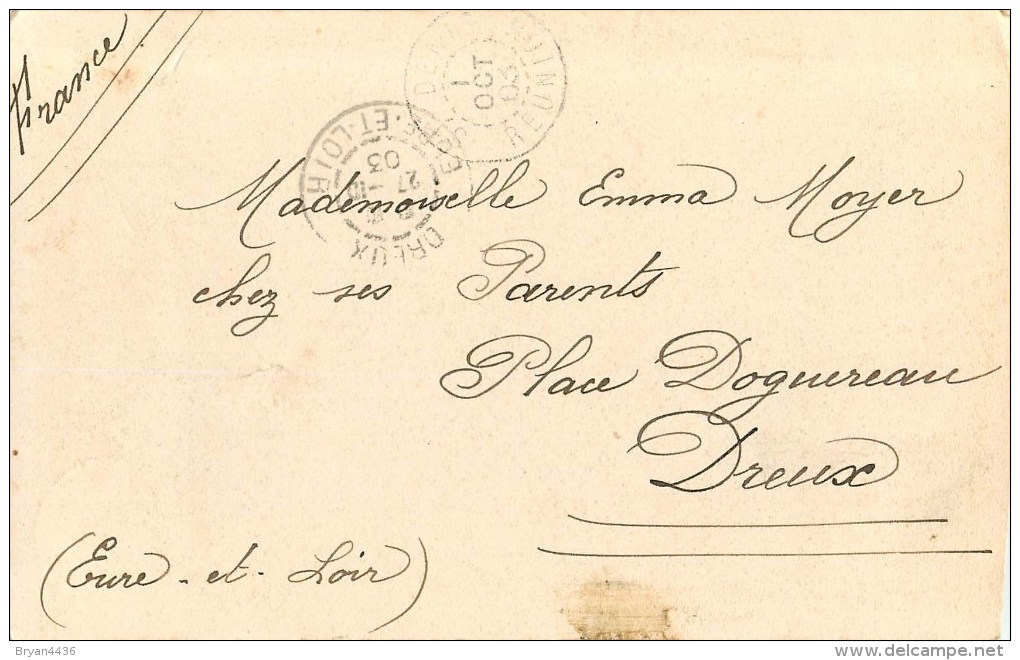 France
1
OCT
03
REUNI
DREUX
EURE-ET-LOIR
27
03
Mademoiselle Emma Moyer
chez ses Parents
Place Doguereau
Dreux
(Eure-et-Loir)
Bryan4436
delcampe.net